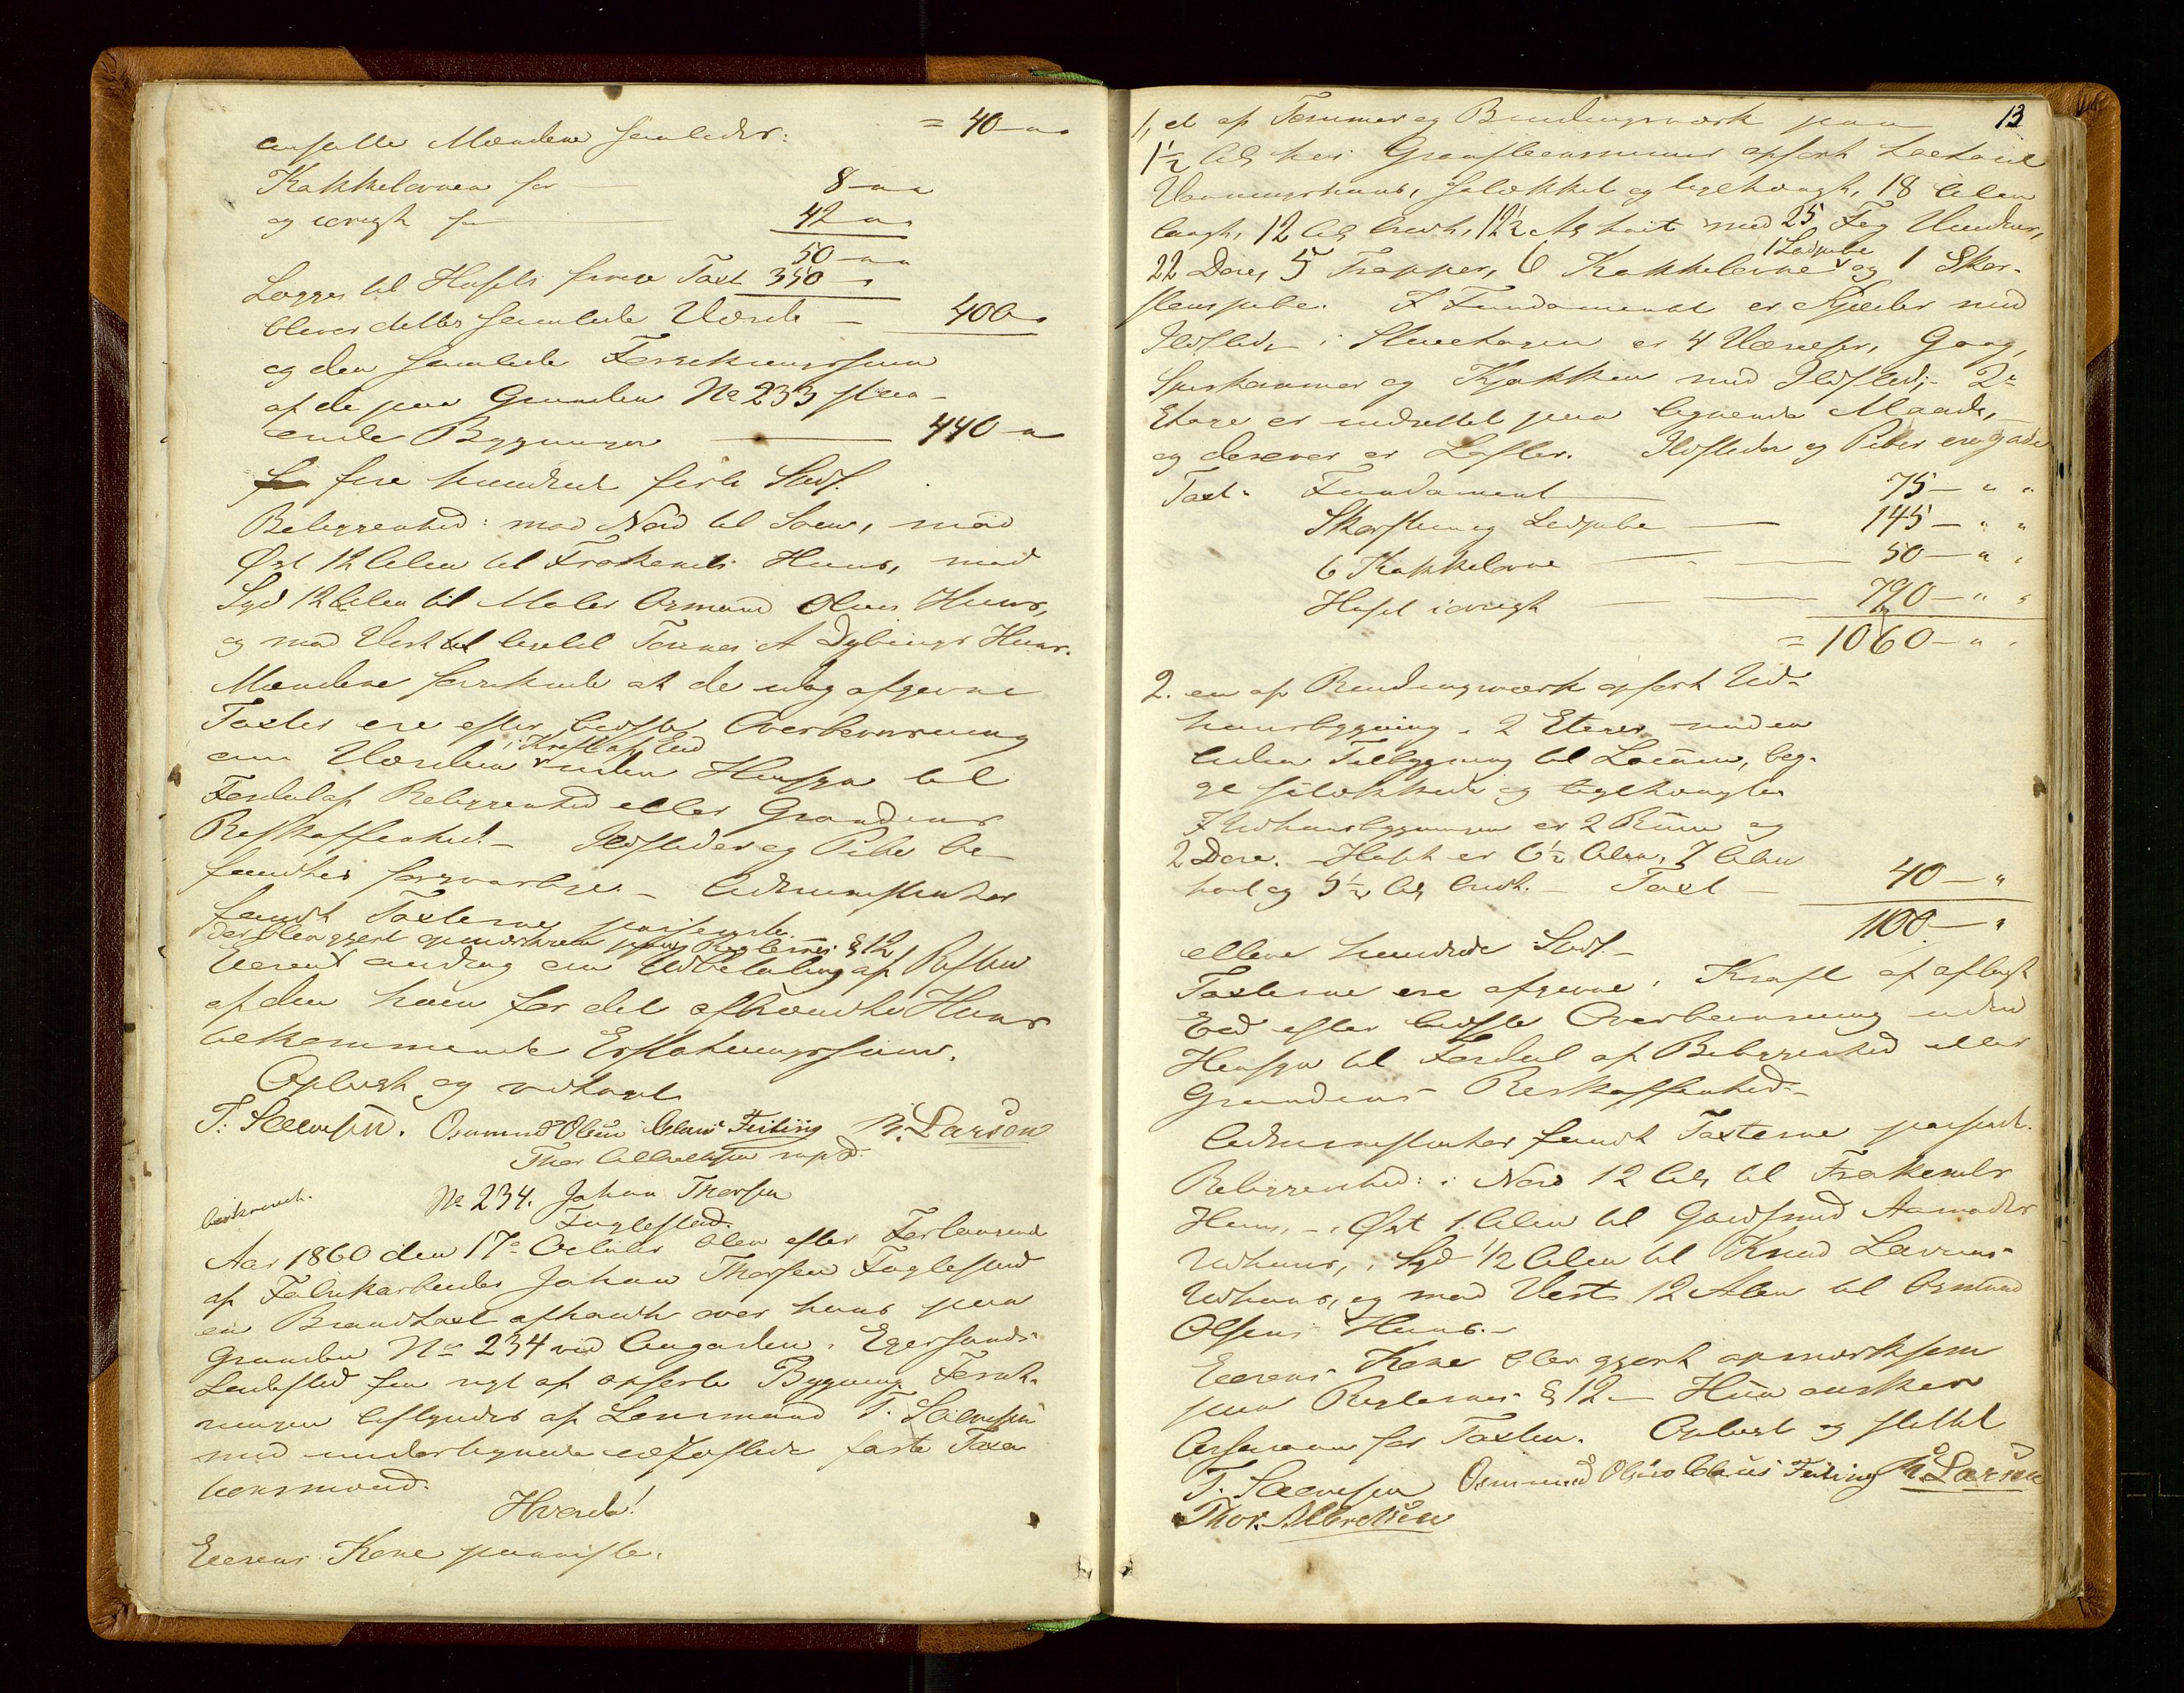 ansatte Mændene saaledes: = 40 - " "
Kakkelovnen for — 8 - " "
og iøvrigt for — 42 - " "
50 - " "
Lægges til Husets forrige Taxt 350 - "
bliver dettes samlede Værdie — 400 - "
og den samlede Forsikringssum
af de paa Grunden No 233 staa-
ende Bygninger — 440 - "
fire hundrede firti Spd.
Beliggenhed: mod Nord til Søen, mod
Øst 12 Alen til Huus, mod
Syd 12 Alen til Maler Osmund Olsens Huus,
og mod Vest til A Dybings Huus.
Mændene forsikrede at de idag afgivne
Taxter ere efter bedste Overbeviisning
om Værdien i Kraft af Eed uden Hensyn til
Fordel af Beliggenhed eller Grundens
Beskaffenhed - Ildsteder og Pibe be-
fandtes forsvarlige. -
fandt Taxterne passende.
der blev gjort opmærksom paa Reglernes § 12
Eieren androg om Udbetaling af Resten
af den ham for det afbrændte Huus
tilkommende Erstatningssum.
Oplæst og vedtaget
T. Osmund Olsen Claus Feiring R. Larsen
Thor Albrethsen m p P.
beskrevet.
No 234. Johan Thorsen
Fuglestad.
Aar 1860 den 17de October blev efter Forlangende
af Fabrikarbeider Johan Thorsen Fuglestad
en Brandtaxt afholdt over hans paa
Grunden No 234 ved i Egersunds
Ladested for nyt af opførte Bygning. Forret-
ningen bestyredes af Lensmand T.
med undertegnede edfæstede faste Taxa-
tionsmænd.
Hvorda!
Eierens Kone paaviste.
13
1, et af Tømmer og Bindingsværk paa
1 1/2 Al. høi Graasteensmuur opført toetages
Vaaningshuus, og teglhængt, 18 Alen
langt, 12 Al. bredt, 12 1/2 Al høit med 25 Fag Vinduer,
22 Døre, 5 Trapper, 6 Kakkelovne 1 Ledpibe og 1 Skor-
steenspibe. I Fundamentet er Kjelder med
Ildsted, i Stueetagen er 4 Værelser, Gang,
Spiskammer og Kjøkken med Ildsted; 2den
Etage er indrettet paa lignende Maade,
og derover er Lofter. Ildsteder og Piber ere gode
Taxt: Fundament — 75 - " "
Skorsteen og Ledpibe — 145 - " "
6 Kakkelovne — 50 - " "
Huset iøvrigt — 790 - " "
= 1060 - " "
2. en af Bindingsværk opført Ud-
huusbygning i 2 Etager med en
liden Tilbygning til Locum, beg-
ge og teglhængte
I Udhuusbygningen er 2 Rum og
2 Døre. - Huset er 6 1/2 Alen, 7 Alen
høit og 5 1/2 Al bredt. - Taxt — 40 - "
1100 - "
elleve hundrede Spd. -
Taxterne ere afgivne i Kraft af aflagt
Eed efter bedste Overbeviisning uden
Hensyn til Fordel af Beliggenhed eller
Grundens Beskaffenhed. -
fandt Taxterne passende.
Beliggenhed: i Nord 12 Al. til
Huus, - i Øst 1. Alen til Gudmund Aamodts
Udhuus, i Syd 1/2 Alen til Knud
Udhuus, og mod Vest 12 Alen til Osmund
Olsens Huus. -
Eierens Kone blev gjort opmærksom
paa Reglernes § 12 - Hun ønsker
for Taxten. Oplæst og sluttet
T. Osmund Olsen Claus Feiring R. Larsen
Thor. Albretsen